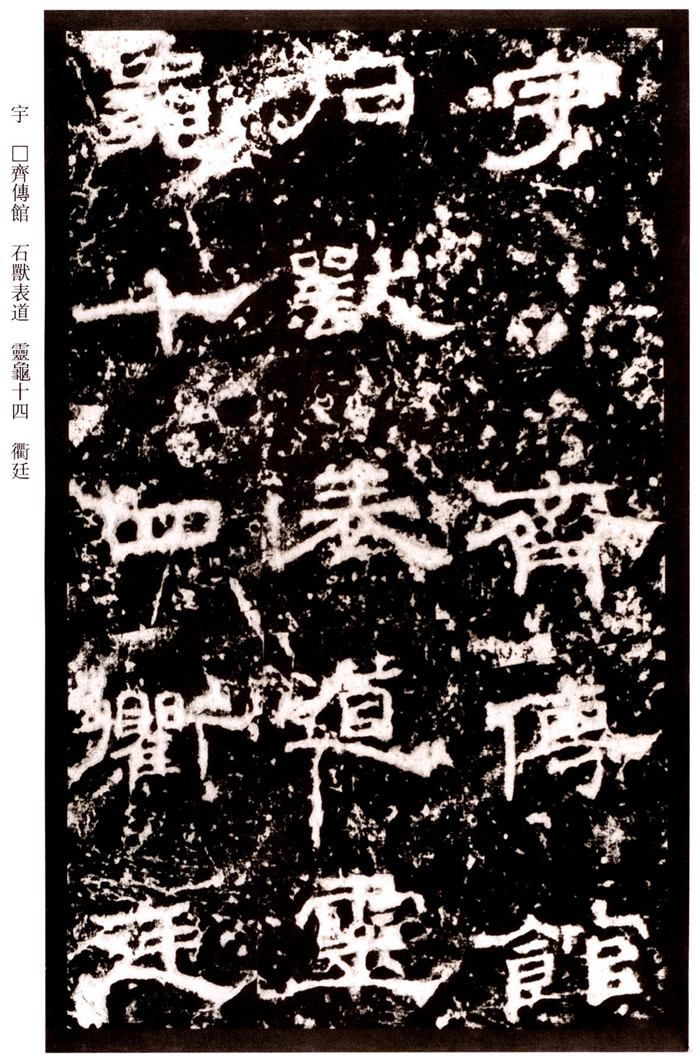 宇齊傳館
石獸表道靈
龜十四衢廷
宇　□齊傳館　石獸表道　靈龜十四　衢廷